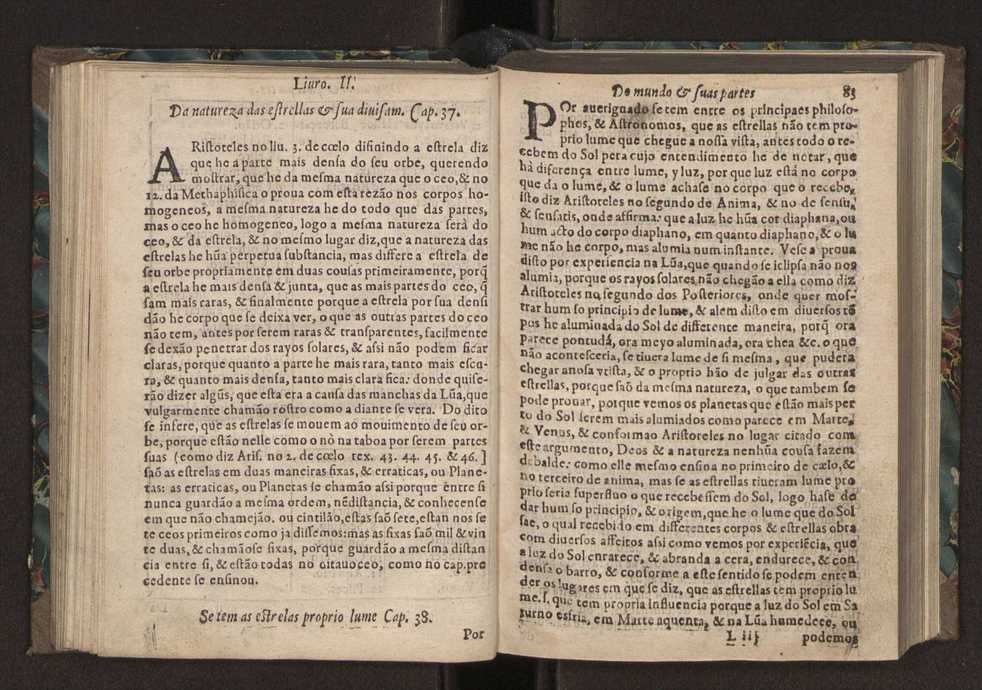 Liuro. II.
Da natureza das estrellas & sua diuisam. Cap. 37.
ARistoteles no liu. 3. de cœlo difinindo a estrela diz
que he a parte mais densa do seu orbe, querendo
mostrar, que he da mesma natureza que o ceo, & no
12. da Methaphisica o proua com esta rezão nos corpos ho-
mogeneos, a mesma natureza he do todo que das partes,
mas o ceo he homogeneo, logo a mesma natureza serà do
ceo, & da estrela, & no mesmo lugar diz, que a natureza das
estrelas he hũa perpetua substancia, mas differe a estrela de
seu orbe propriamente em duas cousas primeiramente, porq̃
a estrela he mais densa & junta, que as mais partes do ceo, q̃
sam mais raras, & finalmente porque a estrela por sua densi
dão he corpo que se deixa ver, o que as outras partes do ceo
não tem, antes por serem raras & transparentes, facilmente
se dexão penetrar dos rayos solares, & assi não podem ficar
claras, porque quanto a parte he mais rara, tanto mais escu-
ra, & quanto mais densa, tanto mais clara fica: donde quise-
rão dizer algũs, que esta era a causa das manchas da Lũa, que
vulgarmente chamão rostro como a diante se vera. Do dito
se infere, que as estrelas se mouem ao mouimento de seu or-
be, porque estão nelle como o nò na taboa por serem partes
suas (como diz Aris. no 2. de cœlo tex. 43. 44. 45. & 46. ]
saõ as estrelas em duas maneiras fixas, & erraticas, ou Plane-
tas: as erraticas, ou Planetas se chamão assi porque entre si
nunca guardão a mesma ordem, nẽ distancia, & conhecense
em que não chamejão. ou cintilão, estas saõ sete, estan nos se
te ceos primeiros como ja dissemos: mas as fixas saõ mil & vin
te duas, & chamãose fixas, porque guardão a mesma distan
cia entre si, & estão todas no oitauo ceo, como no cap. pre
cedente se ensinou.
Se tem as estrelas proprio lume Cap. 38.
Por
Do mundo & suas partes 83
POr aueriguado se tem entre os principaes philoso-
phos, & Astronomos, que as estrellas não tem pro-
prio lume que chegue a nossa vista, antes todo o re-
cebem do Sol pera cujo entendimento he de notar, que
hà diferença entre lume, y luz, por que luz està no corpo
que da o lume, & o lume achase no corpo que o recebe,
isto diz Aristoteles no segundo de Anima, & no de sensu,
& sensatis, onde affirma: que a luz he hũa cor diaphana, ou
hum acto do corpo diaphano, em quanto diaphano, & o lu
me não he corpo, mas alumia num instante. Vese a proua
disto por experiencia na Lũa, que quando se iclipsa não nos
alumia, porque os rayos solares não chegão a ella como diz
Aristoteles no segundo dos Posteriores, onde quer mos-
trar hum so principio de lume, & alem disto em diuersos tẽ
pos he aluminada do Sol de differente maneira, porq̃ ora
parece pontudà, ora meyo aluminada, ora chea &c. o que
não acontesceria, se tiuera lume de si mesma, que pudera
chegar a nosa vista, & o proprio hão de julgar das outras
estrellas, porque saõ da mesma natureza, o que tambem se
pode prouar, porque vemos os planetas que estão mais per
to do Sol serem mais alumiados como parece em Marte,
& Venus, & conformao Aristoteles no lugar citado com
este argumento, Deos & a natureza nenhũa cousa fazem
debalde: como elle mesmo ensina no primeiro de cælo, &
no terceiro de anima, mas se as estrellas tiueram lume pro
prio seria superfluo o que recebessem do Sol, logo hase de
dar hum so principio, & origem, que he o lume que do Sol
sae, o qual recebido em differentes corpos & estrellas obra
com diuersos affeitos assi como vemos por experiẽcia, que
a luz do Sol enrarece, & abranda a cera, endurece, & con
densa o barro, & conforme a este sentido se podem enten
der os lugares em que se diz, que as estrellas tem proprio lu
me. s. que tem propria influencia porque a luz do Sol em Sa
turno esfria, em Marte aquenta, & na Lũa humedece, ou
L iij podemos